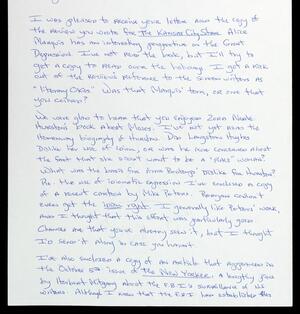 I was pleased to receive your letter and the copy of
the review you wrote for The Kansas City Star. Alice
Marquis has an interesting perspective on the Great
Depression. I've not read the book, but I'll try to
get a copy to read over the holiday. I got a kick
out of the reference to the screen writers as
"literary Okies". Was that Marquis' term, or one that
you coined?
We were glad to learn that you enjoyed Zora Neale
Hurston's book about blues. I've not yet read the
Hemenway biography of Hurston. Did Langston Hughes
dislike her use of idiom, or was he more concerned about
the fact that she didn't want to be a "race" woman?
What was the basis for Arna Bontemps' dislike for Hurston?
Re: the use of idiomatic expression I've enclosed a copy
of a recent cartoon by Mike Peters. Reagan couldn't
even get the idiom right. I generally like Peters' work,
and I thought that this effort was particularly good.
Chances are that you've already seen it, but I thought
I'd send it along in case you haven't.
I've also enclosed a copy of an article that appeared in
the October 5th issue of The New Yorker. A lengthy piece
by Herbert Mitgang about the F.B.I.'s surveillance of
writers. Although I knew that the F.B.I. had established files